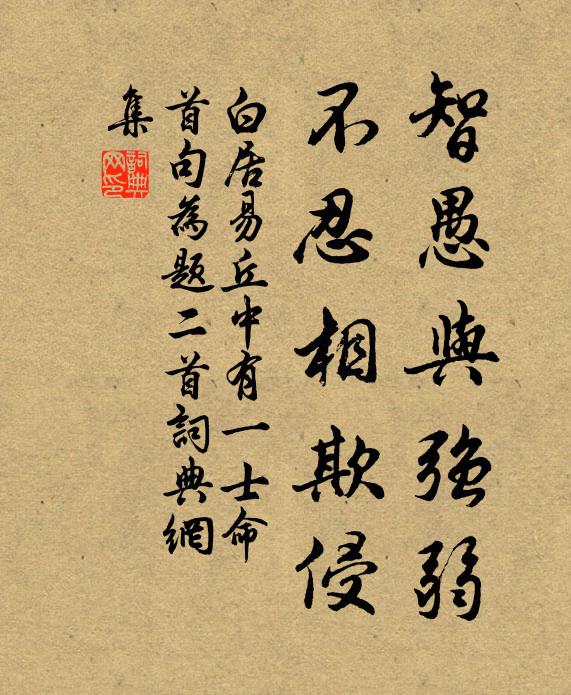 智愚與強弱
不忍相欺侵
白居易丘中有一士命
首句為題二首詞典網
集
詞典
网印